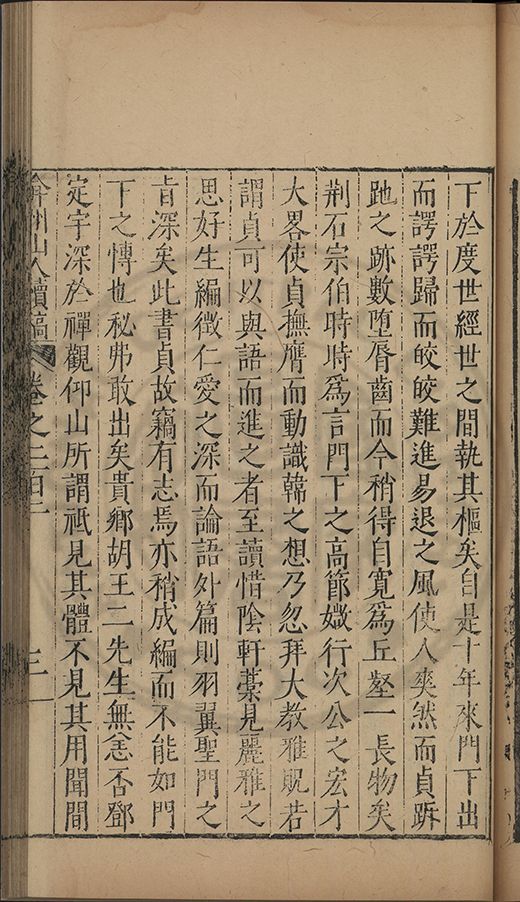 下於度世經世之間執其樞矣自是十年來門下出
而諤諤歸而皎皎難進易退之風使人爽然而貞跅
跎之跡數墮脣齒而今稍得自寬爲丘壑一長物矣
荆石宗伯時時爲言門下之高節媺行次公之宏才
大畧使貞撫膺而動識韓之想乃忽拜大教雅貺若
謂貞可以與語而進之者至讀惜陰軒藁見麗雅之
思好生編徴仁愛之深而論語外篇則羽翼聖門之
㫖深矣此書貞故竊有志焉亦稍成編而不能如門
下之慱也秘弗敢出矣貴鄉胡王二先生無恙否鄧
定宇深於禪觀仰山所謂祗見其體不見其用聞間
弇州山人續稿 卷之二百二 三